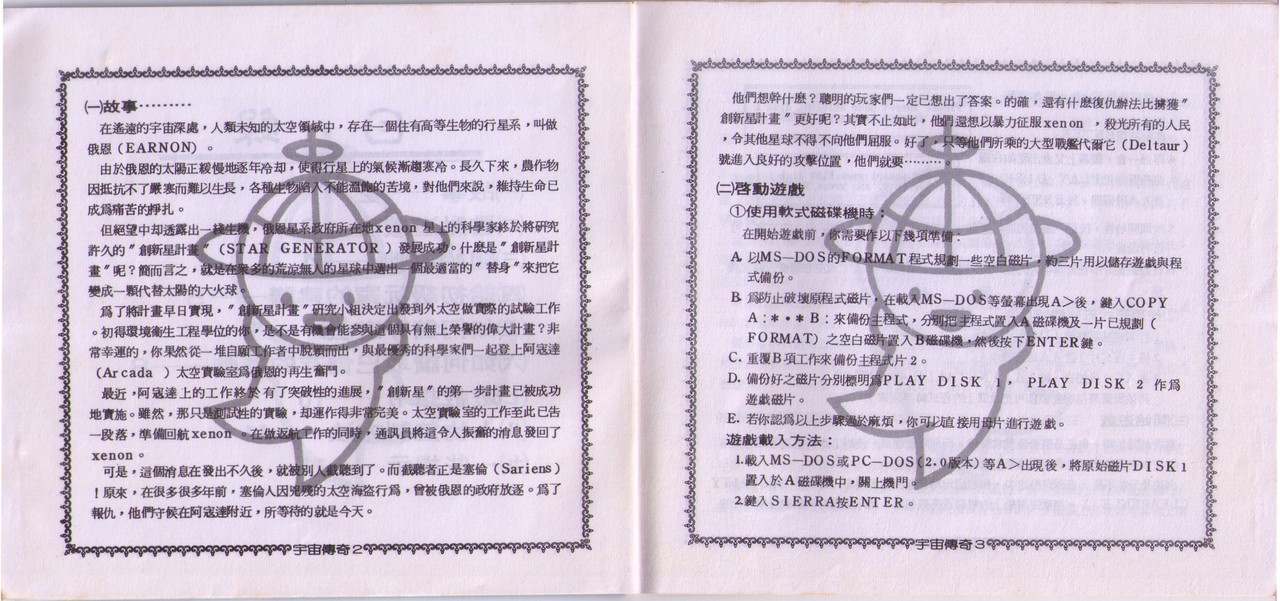 ㈠故事………
在遙遠的宇宙深處，人類未知的太空領域中，存在一個住有高等生物的行星系，叫做
俄恩（EARNON）。
由於俄恩的太陽正緩慢地逐年冷却，使得行星上的氣候漸趨寒冷。長久下來，農作物
因抵抗不了嚴寒而難以生長，各種生物陷入不能溫飽的苦境，對他們來說，維持生命已
成爲痛苦的掙扎。
但絕望中却透露出一綫生機，俄恩星系政府所在地xenon 星上的科學家終於將研究
許久的〞創新星計畫〞（STAR GENERATOR）發展成功。什麼是〞創新星計
畫〞呢？簡而言之，就是在衆多的荒涼無人的星球中選出一個最適當的〞替身〞來把它
變成一顆代替太陽的大火球。
爲了將計畫早日實現，〞創新星計畫〞研究小組決定出發到外太空做實際的試驗工作
。初得環境衛生工程學位的你，是不是有機會能參與這個具有無上榮譽的偉大計畫？非
常幸運的，你果然從一堆自願工作者中脫穎而出，與最優秀的科學家們一起登上阿寇達
（Arcada ）太空實驗室爲俄恩的再生奮鬥。
最近，阿寇達上的工作終於有了突破性的進展，〞創新星〞的第一步計畫已被成功
地實施。雖然，那只是測試性的實驗，却運作得非常完美。太空實驗室的工作至此已告
一段落，準備回航xenon 。在做返航工作的同時，通訊員將這令人振奮的消息發回了
xenon。
可是，這個消息在發出不久後，就被別人截聽到了。而截聽者正是塞倫（Sariens）
！原來，在很多很多年前，塞倫人因兇殘的太空海盜行爲，曾被俄恩的政府放逐。爲了
報仇，他們守候在阿寇達附近，所等待的就是今天。
宇宙傳奇2
他們想幹什麼？聰明的玩家們一定已想出了答案。的確，還有什麼復仇辦法比擄獲〞
創新星計畫〞更好呢？其實不止如此，他們還想以暴力征服xenon ，殺光所有的人民
，令其他星球不得不向他們屈服。好了，只等他們所乘的大型戰艦代爾它（Deltaur）
號進入良好的攻擊位置，他們就要………
㈡啓動遊戲
①使用軟式磁碟機時：
在開始遊戲前，你需要作以下幾項準備：
A. 以MS—DOS的FORMAT程式規劃一些空白磁片，約三片用以儲存遊戲與程
式備份。
B. 爲防止破壞原程式磁片，在載入MS—DOS等螢幕出現A＞後，鍵入COPY
A：＊・＊ B：來備份主程式，分別把主程式置入A磁碟機及一片已規劃（
FORMAT）之空白磁片置入B磁碟機，然後按下ENTER鍵。
C. 重覆B項工作來備份主程式片2。
D. 備份好之磁片分別標明爲PLAY DISK 1， PLAY DISK 2 作爲
遊戲磁片。
E. 若你認爲以上步驟過於麻煩，你可以直接用母片進行遊戲。
遊戲載入方法：
1.載入MS—DOS或PC—DOS（2.0版本）等A＞出現後，將原始磁片DISK1
置入於A磁碟機中，關上機門。
2.鍵入SIERRA按ENTER。
宇宙傳奇3